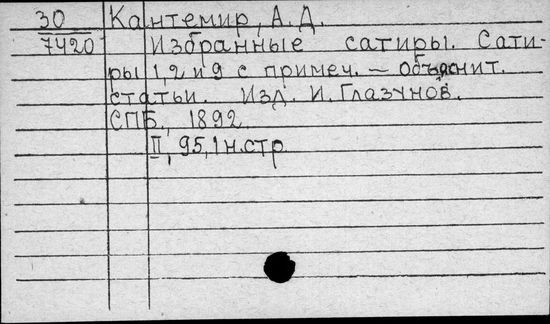 30
7420
Кантемир, А. Д.
Избранные сатиры. Сати-
ры 1, 2 и 9 с примеч. — объяснит.
статьи. Изд. И. Глазунов.
СПБ, 1892.
II, 95, 1 н. стр.